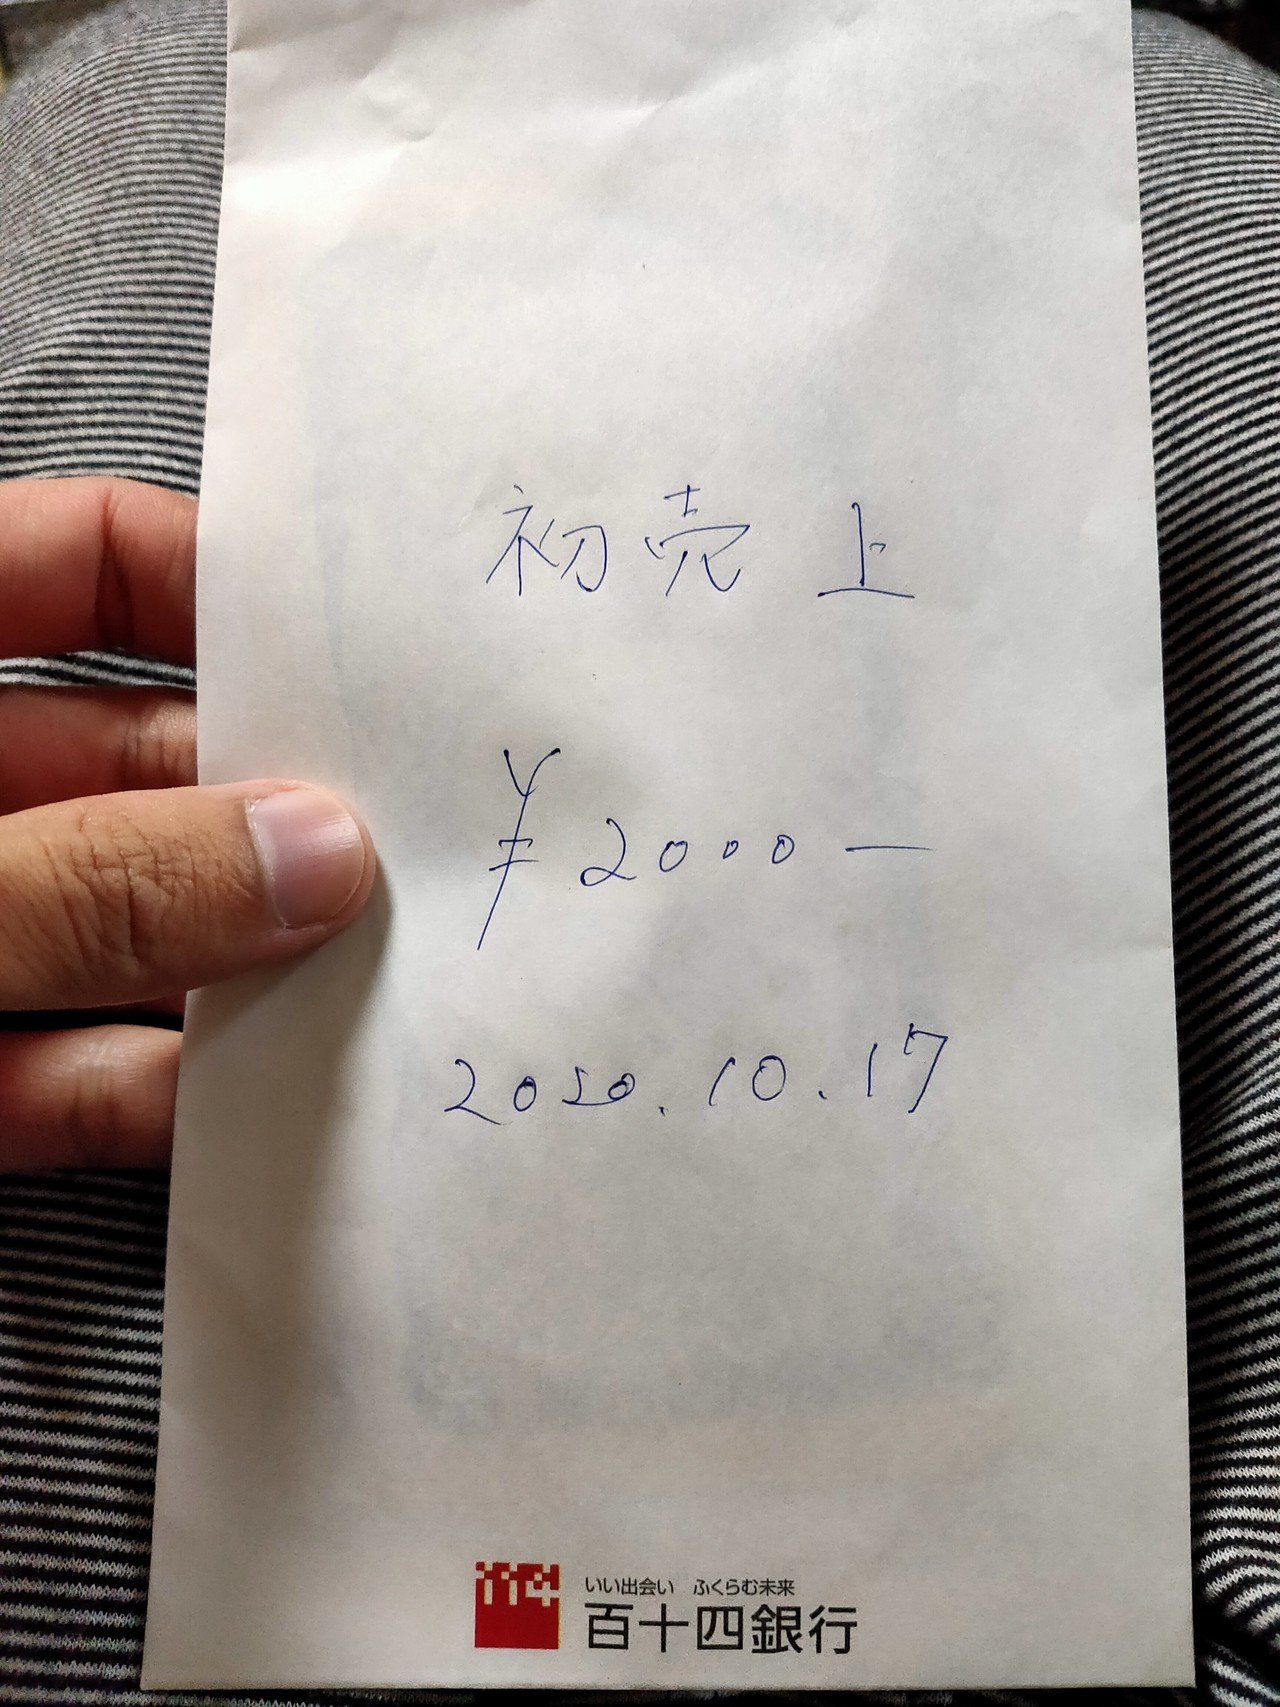 初売上
¥2000-
2020.10.17
いい出会い ふくらむ未来
114
百十四銀行